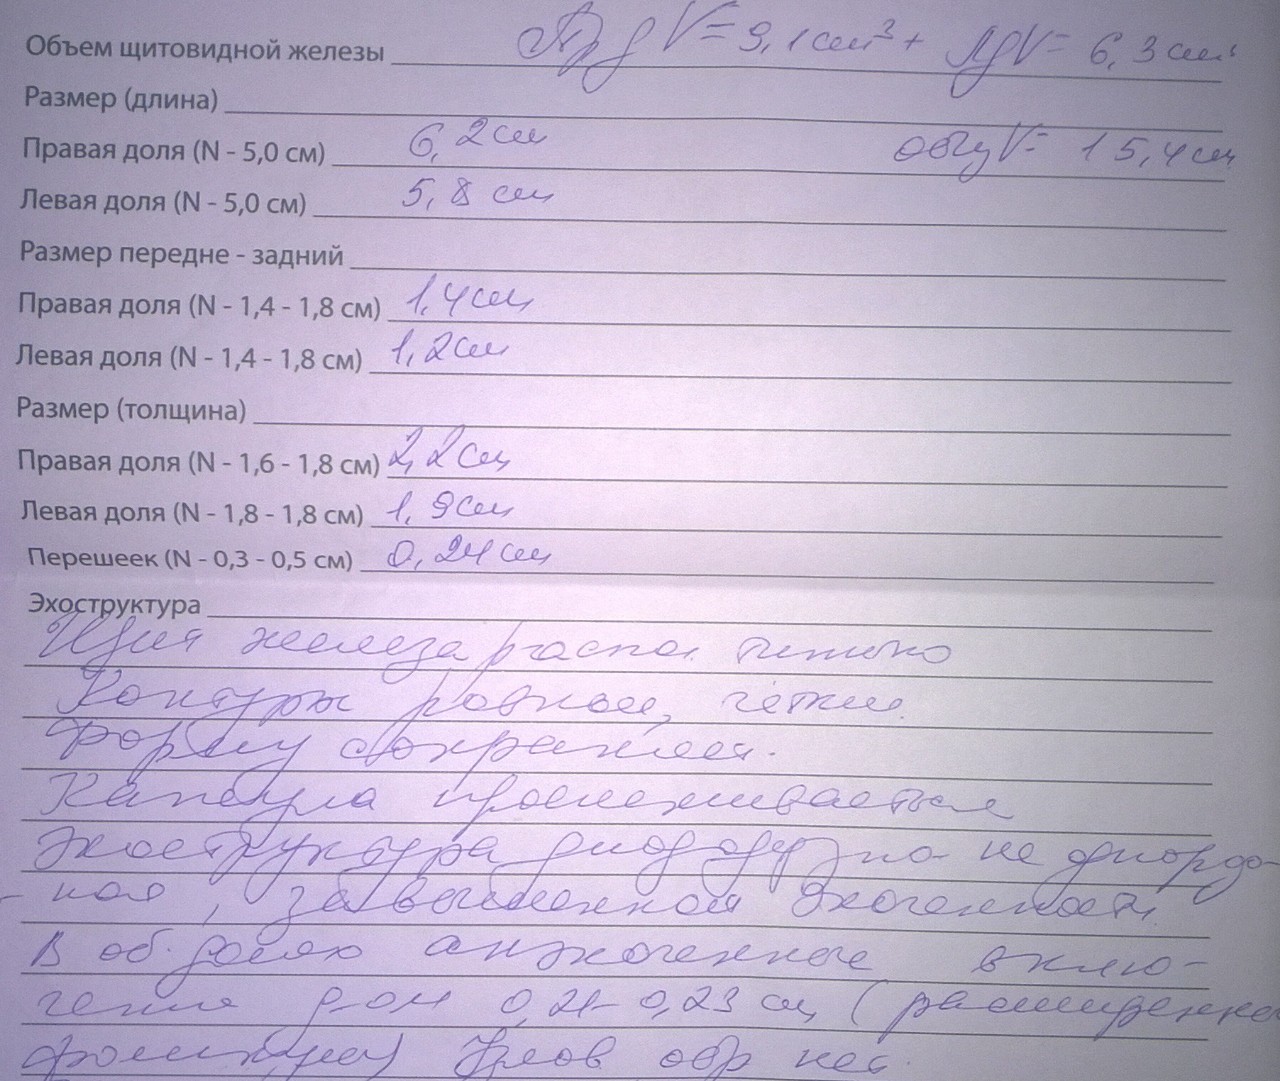 Объем щитовидной железы Пр д V= 9,1 см³ + Лд V= 6,3 см³
Размер (длина)
Правая доля (N - 5,0 см) 6,2 см общ V= 15,4 см
Левая доля (N - 5,0 см) 5,8 см
Размер передне - задний
Правая доля (N - 1,4 - 1,8 см) 1,4 см
Левая доля (N - 1,4 - 1,8 см) 1,2 см
Размер (толщина)
Правая доля (N - 1,6 - 1,8 см) 2,2 см
Левая доля (N - 1,8 - 1,8 см) 1,9 см
Перешеек (N - 0,3 - 0,5 см) 0,24 см
Эхоструктура
Щит железа распол. типично
Контуры ровные, четкие.
Форму сохраняет.
Капсула прослеживается
Эхоструктура диффузно не однород-
-ная, эхогенности.
В об. долях анэхогенные вклю-
чения р-ом 0,21-0,23 см (расширенные
фолликулы) Узлов обр нет.